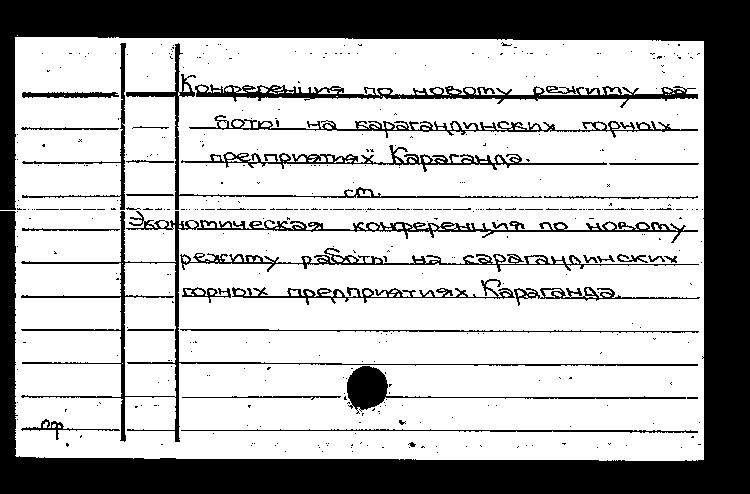 Конференция по новому режиму ра-
боты на карагандинских горных
предприятиях. Караганда.
см.
Экономическая конференция по новому
режиму работы на карагандинских
горных предприятиях. Караганда.
пф